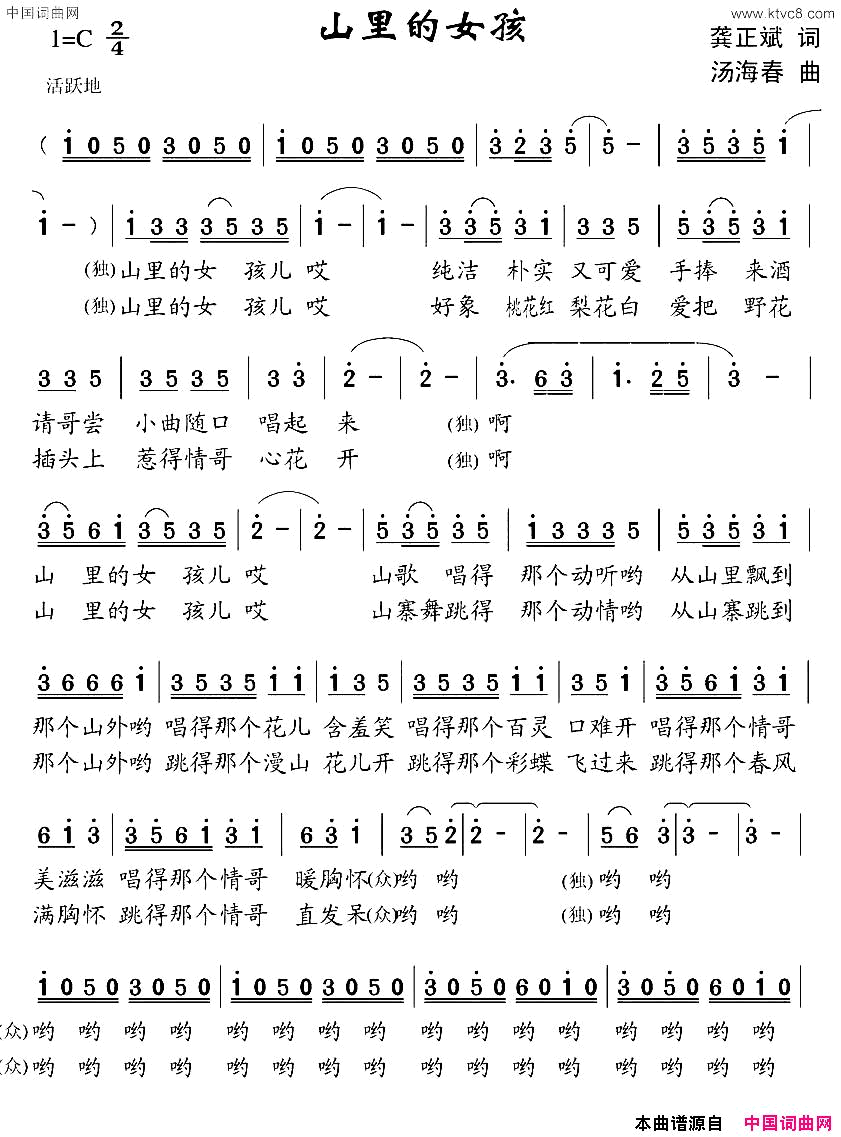 中国词曲网
www.ktvc8.com
山里的女孩
1=C 2/4
龚正斌 词
汤海春 曲
活跃地
( 1 0 5 0 3 0 5 0 | 1 0 5 0 3 0 5 0 | 3 2 3 5 | 5 - | 3 5 3 5 1 |
1 - ) | 1 3 3 3 5 3 5 | 1 - | 1 - | 3 3 5 3 1 | 3 3 5 | 5 3 5 3 1 |
(独)山里的女 孩儿 哎 纯洁 朴实 又可爱 手捧 来酒
(独)山里的女 孩儿 哎 好象 桃花红 梨花白 爱把 野花
3 3 5 | 3 5 3 5 | 3 3 | 2 - | 2 - | 3. 6 3 | 1. 2 5 | 3 - |
请哥尝 小曲随口 唱起 来 (独) 啊
插头上 惹得情哥 心花 开 (独) 啊
3 5 6 1 3 5 3 5 | 2 - | 2 - | 5 3 5 3 5 | 1 3 3 3 5 | 5 3 5 3 1 |
山 里的女 孩儿 哎 山歌 唱得 那个动听哟 从山里飘到
山 里的女 孩儿 哎 山寨舞跳得 那个动情哟 从山寨跳到
3 6 6 6 1 | 3 5 3 5 1 1 | 1 3 5 | 3 5 3 5 1 1 | 3 5 1 | 3 5 6 1 3 1 |
那个山外哟 唱得那个花儿 含羞笑 唱得那个百灵 口难开 唱得那个情哥
那个山外哟 跳得那个漫山 花儿开 跳得那个彩蝶 飞过来 跳得那个春风
6 1 3 | 3 5 6 1 3 1 | 6 3 1 | 3 5 2 | 2 - | 2 - | 5 6 3 | 3 - | 3 - |
美滋滋 唱得那个情哥 暖胸怀(众)哟 哟 (独)哟 哟
满胸怀 跳得那个情哥 直发呆(众)哟 哟 (独)哟 哟
1 0 5 0 3 0 5 0 | 1 0 5 0 3 0 5 0 | 3 0 5 0 6 0 1 0 | 3 0 5 0 6 0 1 0 |
(众)哟 哟 哟 哟 哟 哟 哟 哟 哟 哟 哟 哟 哟 哟 哟 哟
(众)哟 哟 哟 哟 哟 哟 哟 哟 哟 哟 哟 哟 哟 哟 哟 哟
本曲谱源自 中国词曲网